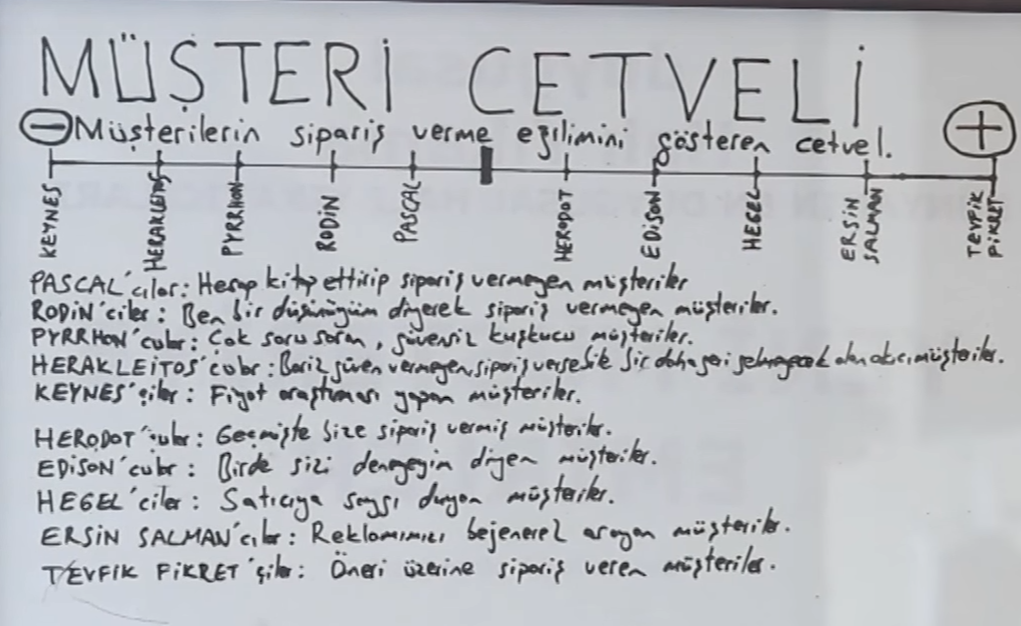 MÜŞTERİ CETVELİ
− Müşterilerin sipariş verme eğilimini gösteren cetvel. +
KEYNES HERAKLEİTOS PYRRHON RODİN PASCAL HERODOT EDİSON HEGEL ERSİN SALMAN TEVFİK FİKRET
PASCAL'cılar: Hesap kitap ettirip sipariş vermeyen müşteriler
RODİN'ciler: Ben bir düşüneyim diyerek sipariş vermeyen müşteriler.
PYRRHON'cular: Çok soru soran, güvensiz kuşkucu müşteriler.
HERAKLEİTOS'cular: güven vermeyen, sipariş versek bir daha geri gelmeyecek olan akıcı müşteriler.
KEYNES'çiler: Fiyat araştırması yapan müşteriler.
HERODOT'çular: Geçmişte bize sipariş vermiş müşteriler.
EDİSON'cular: Birde sizi deneyeyim diyen müşteriler.
HEGEL'ciler: Satıcıya saygı duyan müşteriler.
ERSİN SALMAN'cılar: Reklamımızı beğenerek arayan müşteriler.
TEVFİK FİKRET'çiler: Öneri üzerine sipariş veren müşteriler.